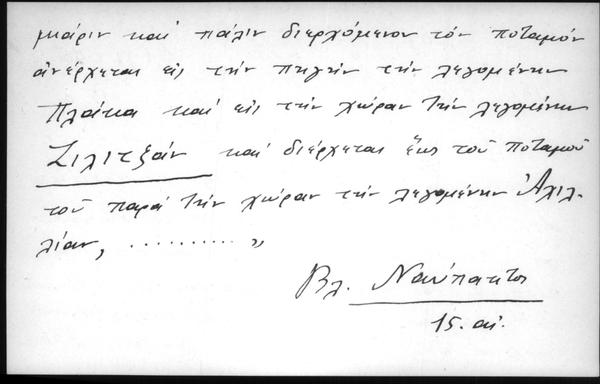 μιάριν καί πάλιν διερχόμενον τόν ποταμόν
ἀνέρχεται εἰς τήν πηγήν τήν λεγομένην
Πλάκα καί εἰς τήν χώραν τήν λεγομένην
Σιλιτξάν καί διέρχεται ἕως τοῦ ποταμοῦ
τοῦ παρά τήν χώραν τήν λεγομένην Ἀχιλ-
λίαν, .......... »
Βλ. Ναύπακτος
15. αἰ.